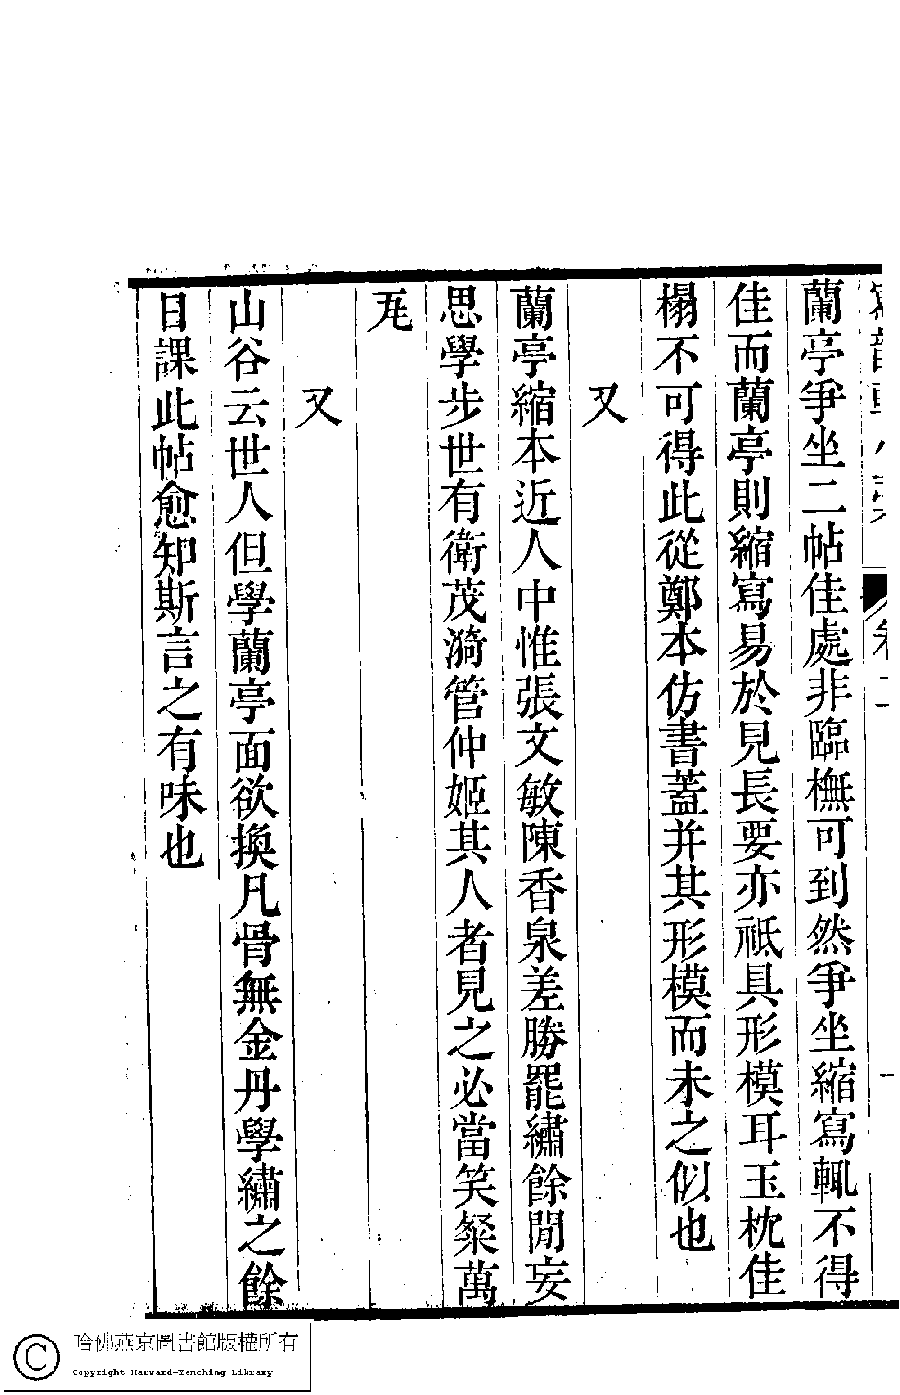 蘭亭爭坐二帖佳處非臨橅可到然爭坐縮寫輒不得
佳而蘭亭則縮寫易於見長要亦祗具形模耳玉枕佳
榻不可得此從鄭本仿書蓋并其形模而未之似也
又
蘭亭縮本近人中惟張文敏陳香泉差勝罷繡餘閒妄
思學步世有衛茂漪管仲姬其人者見之必當笑粲萬
又
山谷云世人但學蘭亭面欲換凡骨無金丹學繡之餘
日課此帖愈知斯言之有味也
哈佛燕京圖書館版權所有
Copyright Harvard-Yenching Library